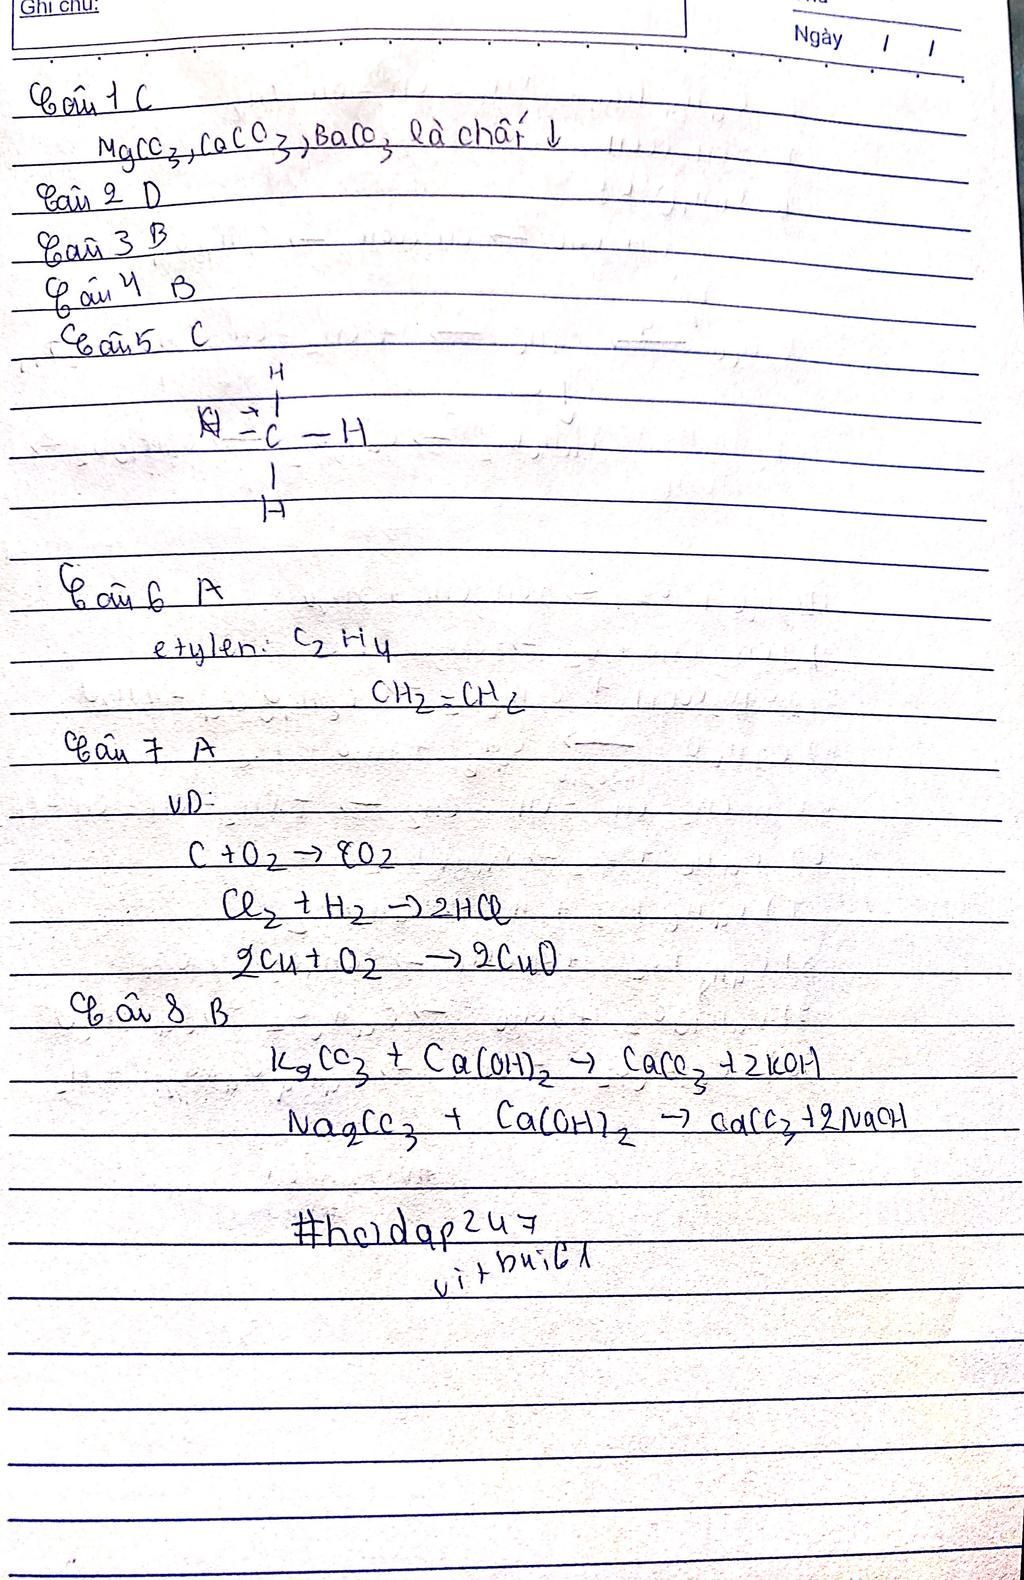 Ghi chú:
Ngày / /
Câu 1 C
MgCO3, CaCO3, BaCO3 là chất ↓
Câu 2 D
Câu 3 B
Câu 4 B
Câu 5 C
H
|
H - C - H
|
H
Câu 6 A
etylen: C2H4
CH2=CH2
Câu 7 A
VD:
C + O2 → CO2
Cl2 + H2 → 2HCl
2Cu + O2 → 2CuO
Câu 8 B
K2CO3 + Ca(OH)2 → CaCO3 + 2KOH
Na2CO3 + Ca(OH)2 → CaCO3 + 2NaOH
#hoidap247